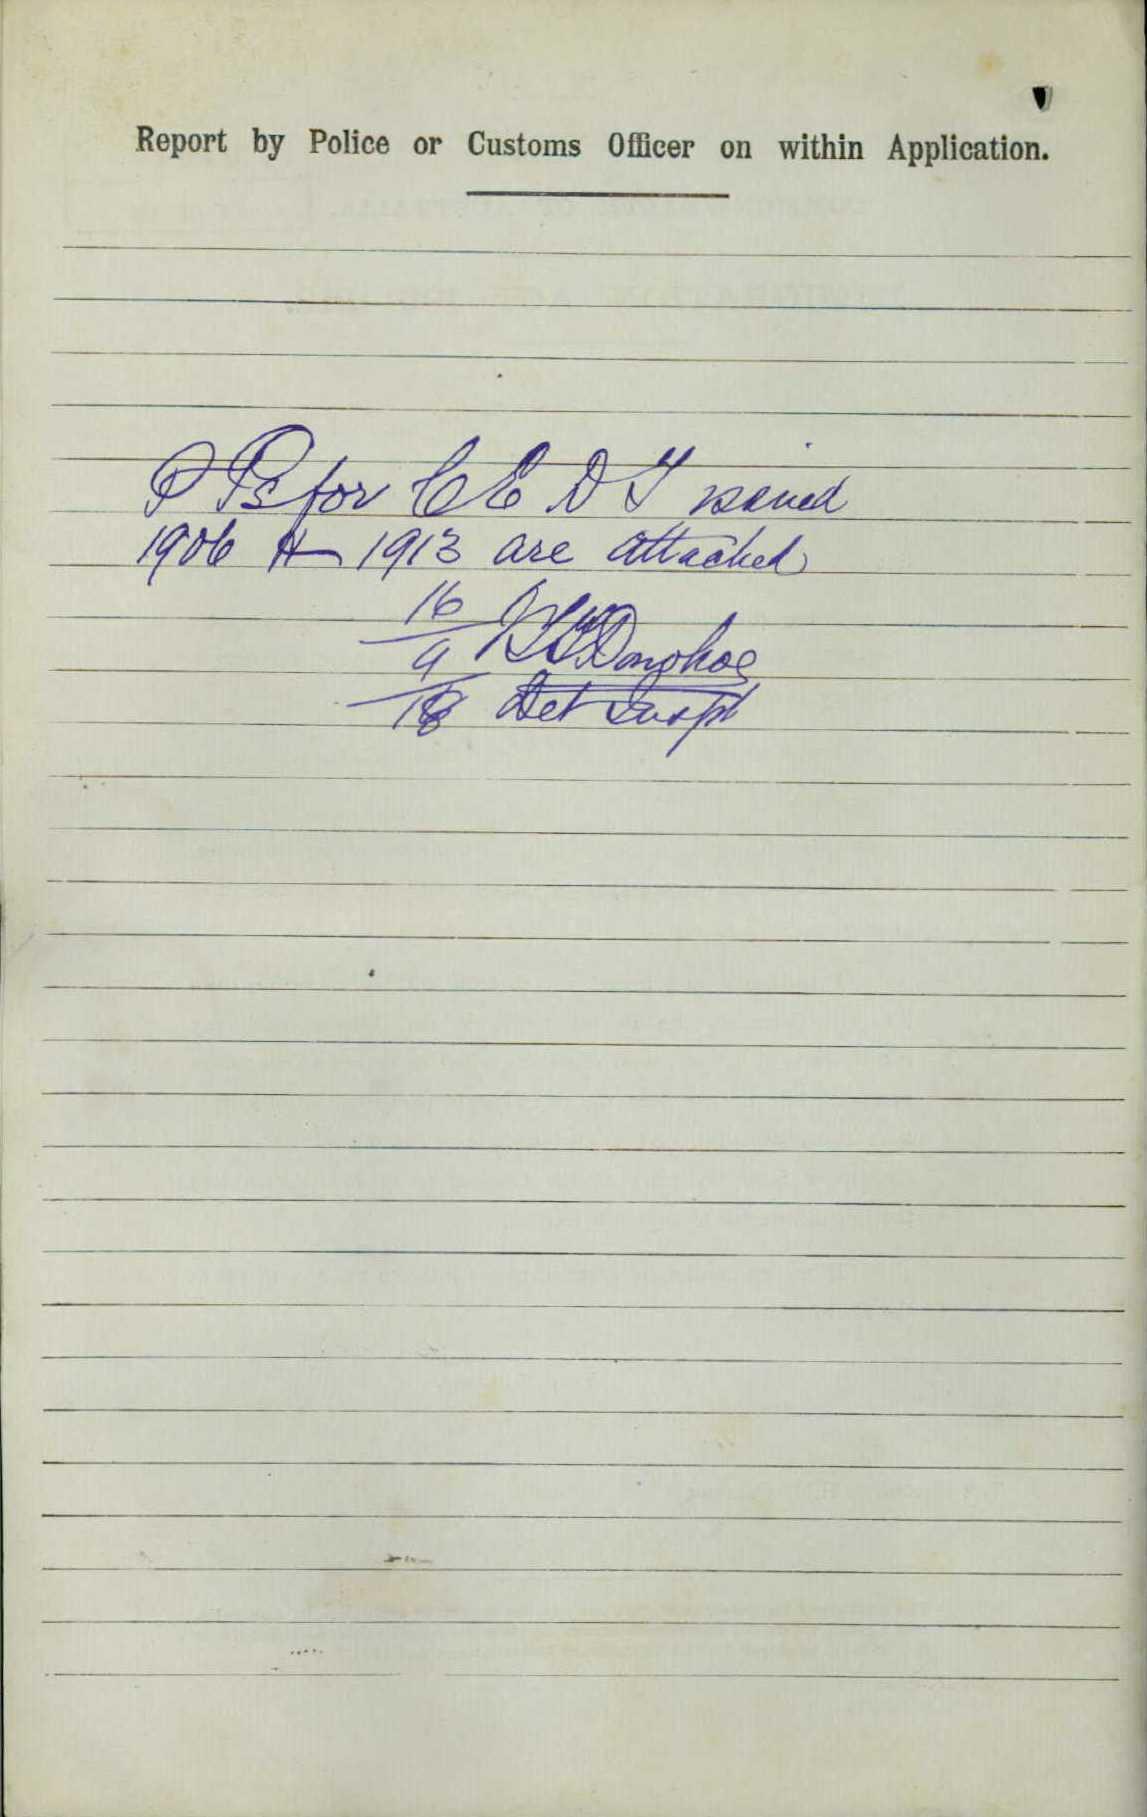 Report by Police or Customs Officer on within Application.
P Ps for C E D T issued
1906 & 1913 are attached
16 J T T Donohoe
9
18 Det Inspt